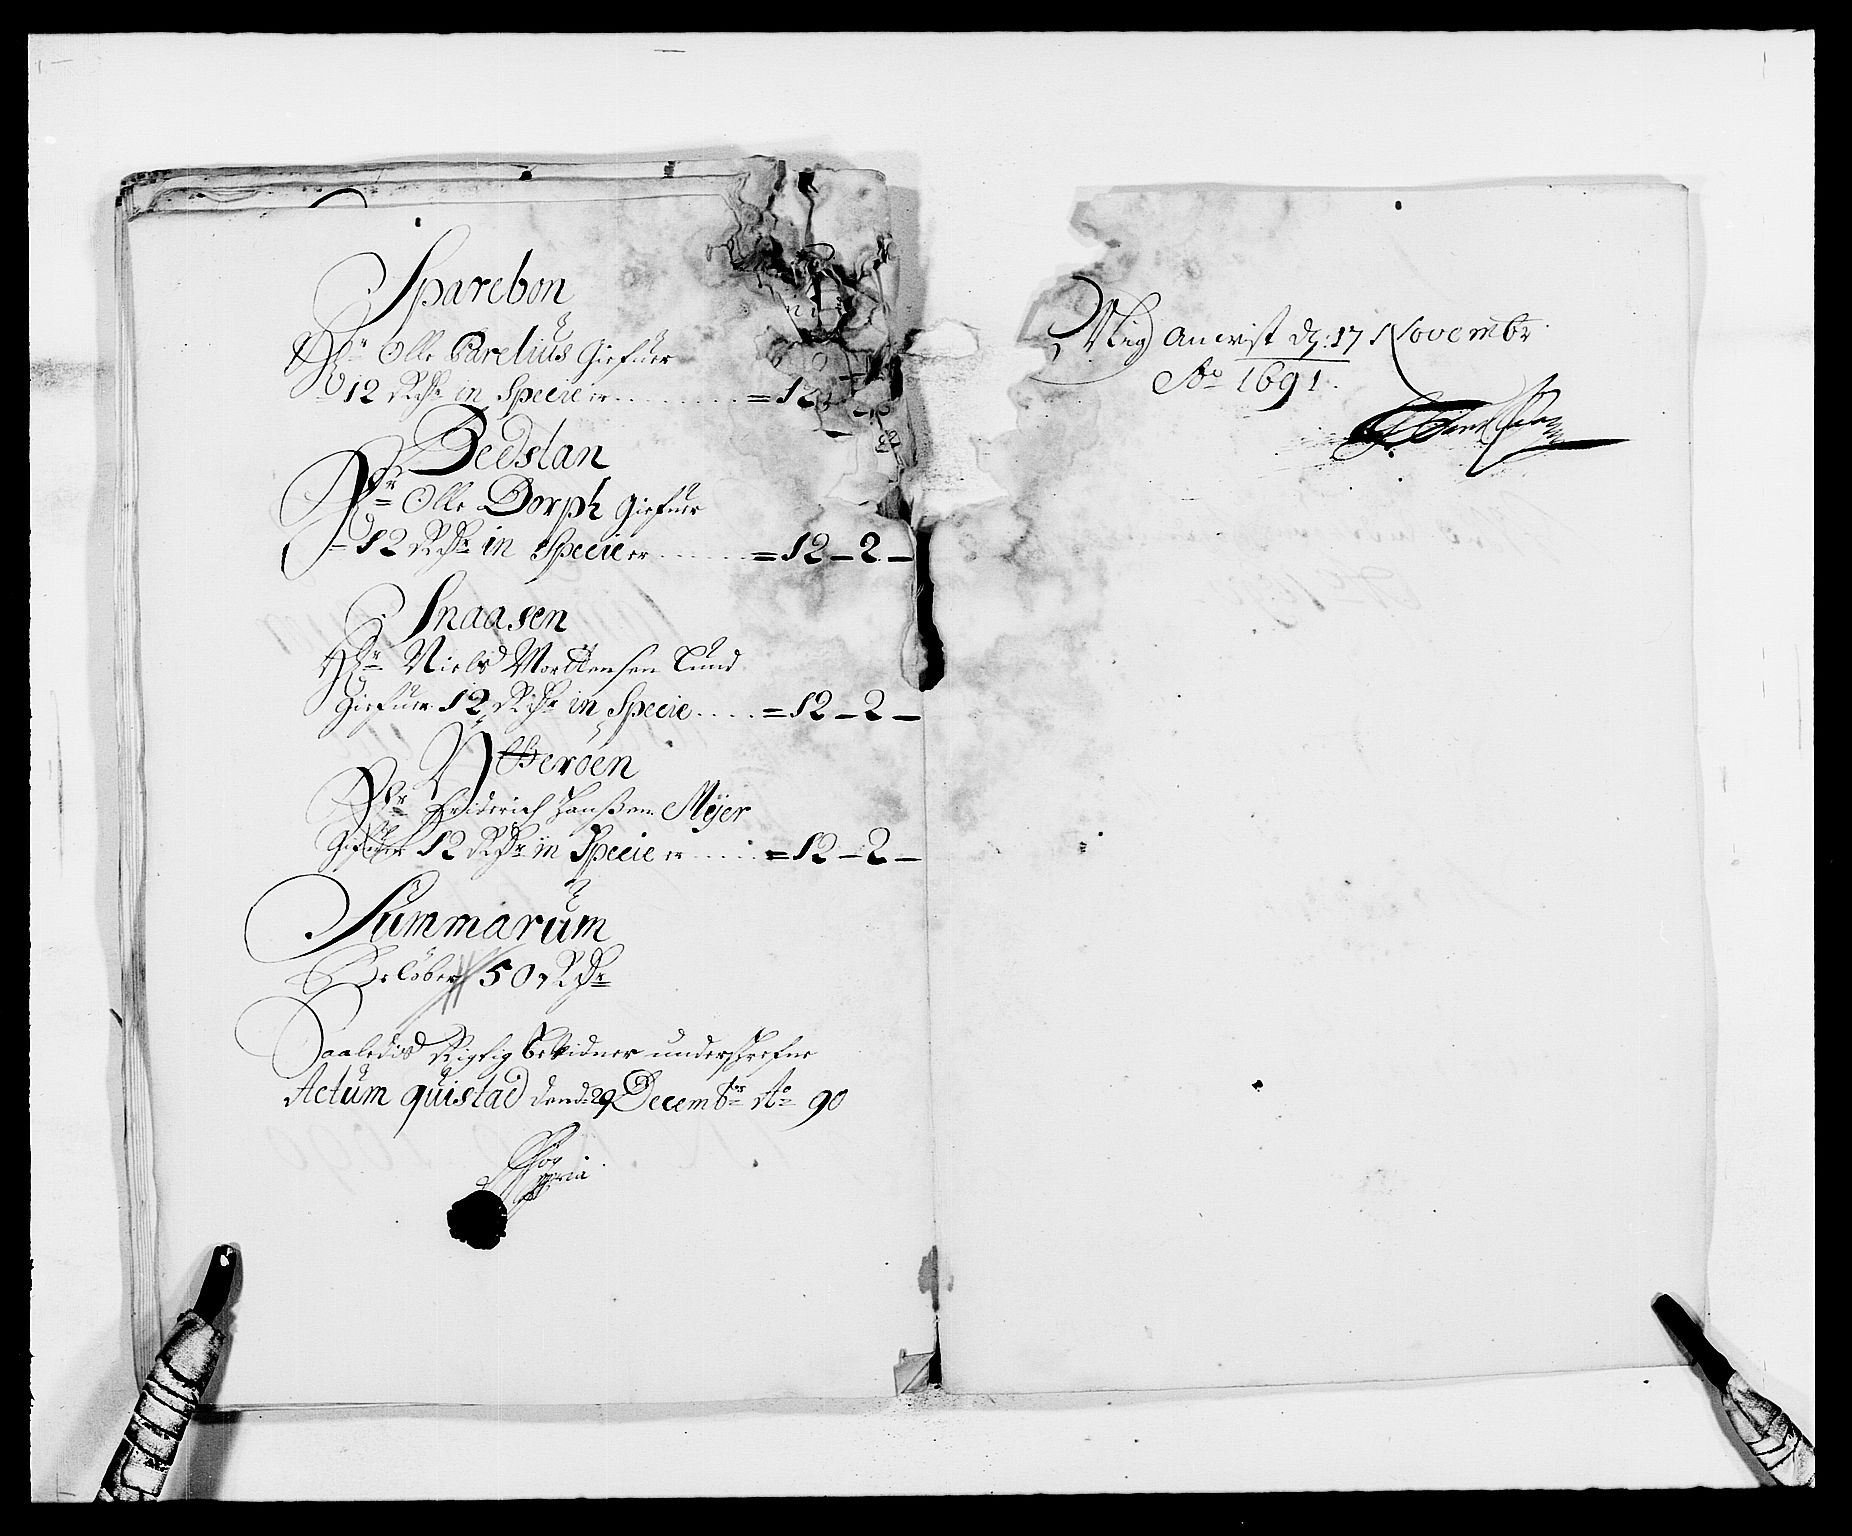 Sparebon
Hr Olle Parelius Giefuer
12 Rdr in Specie er ........ = 12
Bedstan
Hr Olle Dorph Giefuer
= 12 Rdr in Specie er ...... = 12 – 2 –
Snaasen
Hr Niels Morttensen Lund
Giefuer 12 Rdr in Specie .... = 12 – 2 –
Ytterøen
Hr Friderich Hanssen Meÿer
Gifuer 12 Rdr in Specie er ..... = 12 – 2 –
Summarum
Beløber 50 Rdr
Saaledis Rigtig bekidner underskrefne
Actum quistad dend 29 Decembr Ao 90
Mig Anvist d: 17 Novembr
Ao 1691.